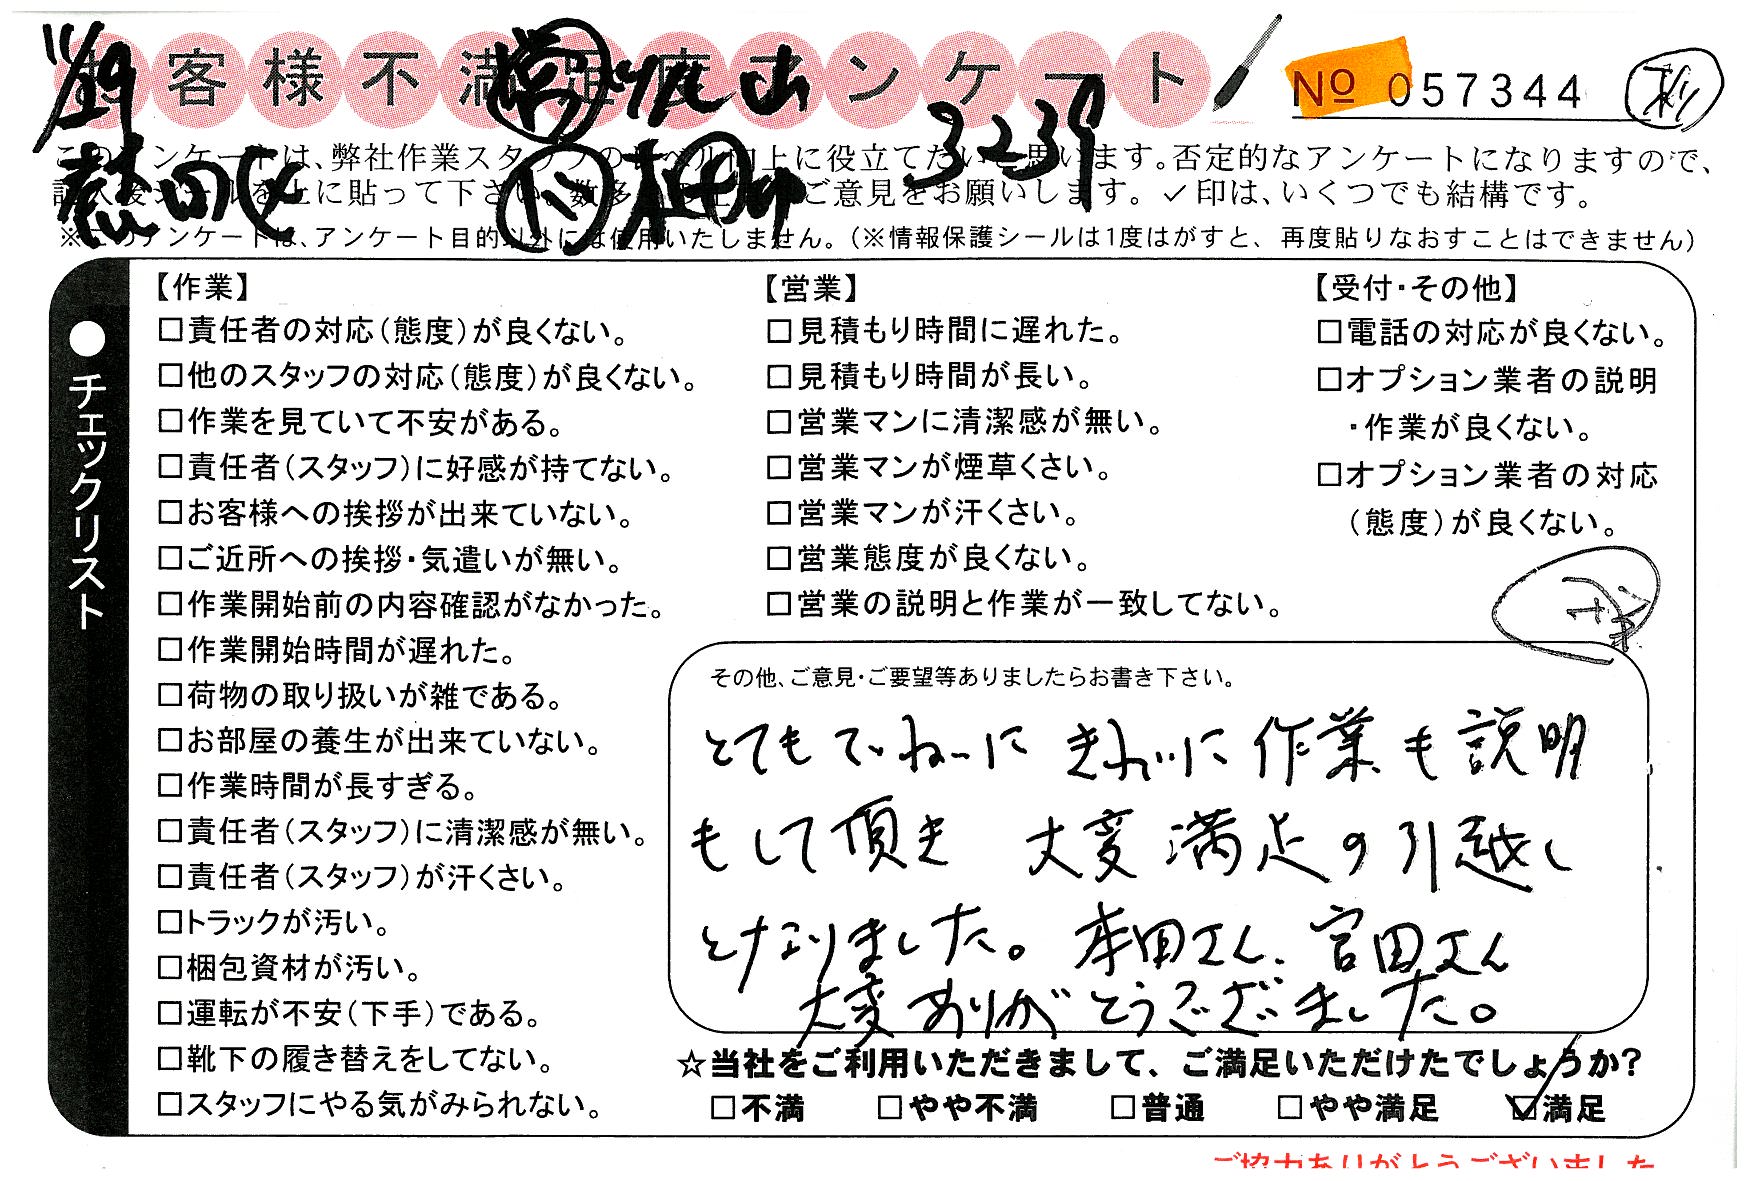 11/29
お客様不満足度アンケート
No 057344
3239
このアンケートは、弊社作業スタッフのレベル向上に役立てたいと思います。否定的なアンケートになりますので、
記入後シールを上に貼って下さい。数多くのご意見をお願いします。✓印は、いくつでも結構です。
※このアンケートは、アンケート目的以外には使用いたしません。(※情報保護シールは1度はがすと、再度貼りなおすことはできません)
●チェックリスト
【作業】
□責任者の対応(態度)が良くない。
□他のスタッフの対応(態度)が良くない。
□作業を見ていて不安がある。
□責任者(スタッフ)に好感が持てない。
□お客様への挨拶が出来ていない。
□ご近所への挨拶・気遣いが無い。
□作業開始前の内容確認がなかった。
□作業開始時間が遅れた。
□荷物の取り扱いが雑である。
□お部屋の養生が出来ていない。
□作業時間が長すぎる。
□責任者(スタッフ)に清潔感が無い。
□責任者(スタッフ)が汗くさい。
□トラックが汚い。
□梱包資材が汚い。
□運転が不安(下手)である。
□靴下の履き替えをしてない。
□スタッフにやる気がみられない。
【営業】
□見積もり時間に遅れた。
□見積もり時間が長い。
□営業マンに清潔感が無い。
□営業マンが煙草くさい。
□営業マンが汗くさい。
□営業態度が良くない。
□営業の説明と作業が一致してない。
【受付・その他】
□電話の対応が良くない。
□オプション業者の説明
・作業が良くない。
□オプション業者の対応
(態度)が良くない。
その他、ご意見・ご要望等ありましたらお書き下さい。
とてもてぃねーに きれいに 作業も説明
もして頂き 大変満足の引越し
となりました。本田さん、宮田さん
大変ありがとうございました。
☆当社をご利用いただきまして、ご満足いただけたでしょうか?
□不満 □やや不満 □普通 □やや満足 ☑満足
ご協力ありがとうございました